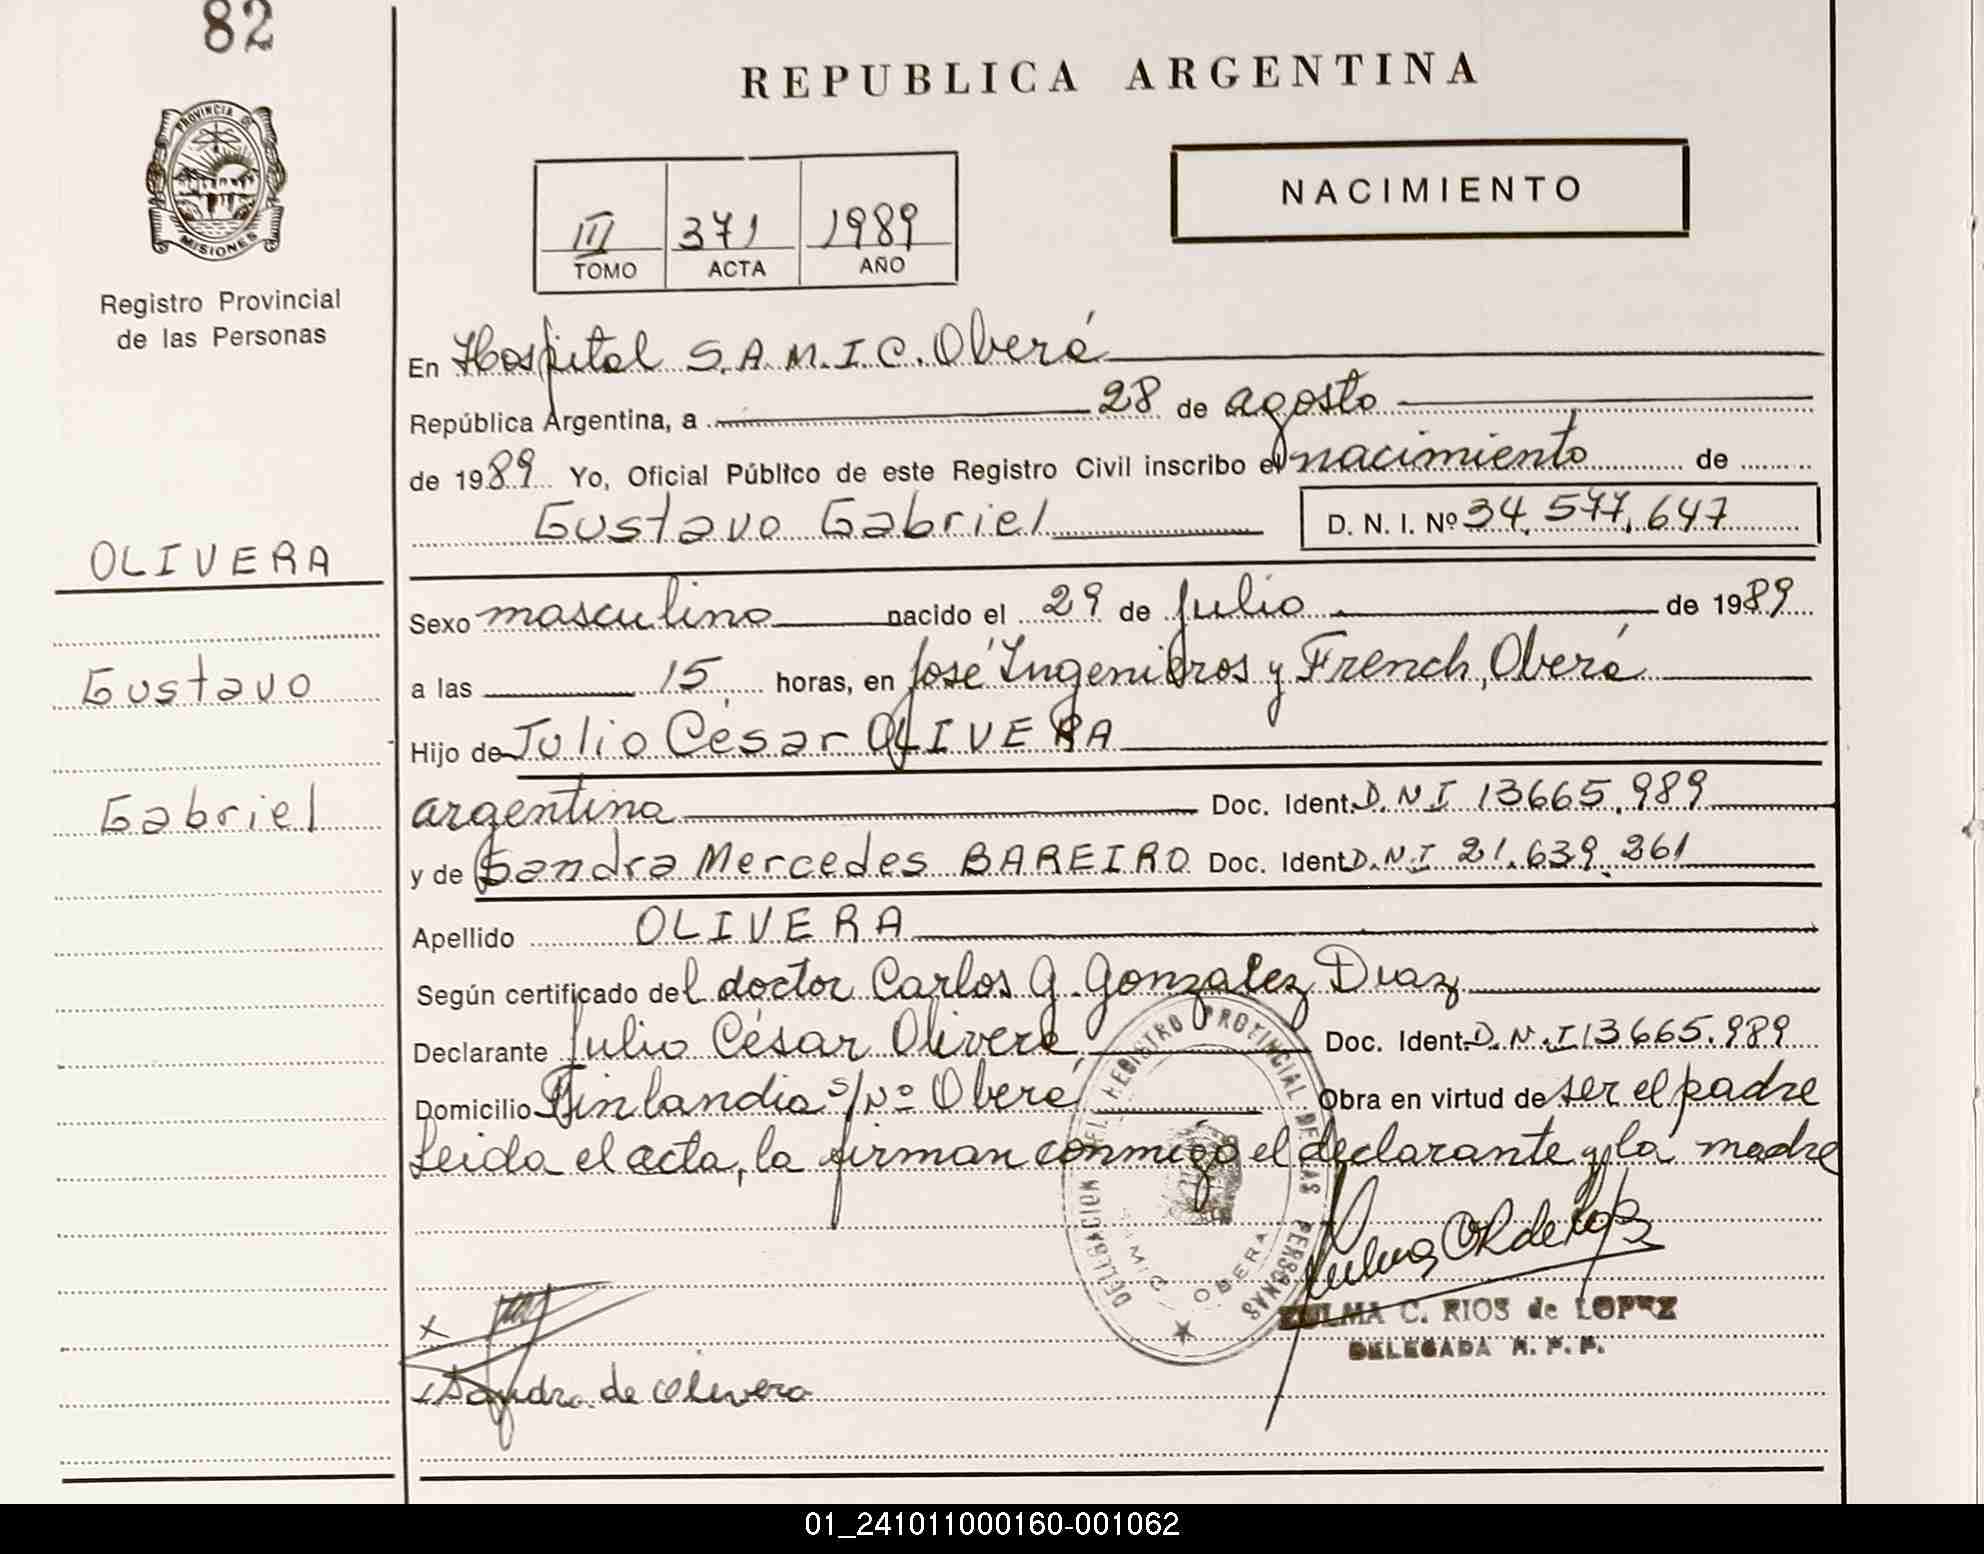 82
REPUBLICA ARGENTINA
PROVINCIA DE
MISIONES
Registro Provincial
de las Personas
NACIMIENTO
III 371 1989
TOMO ACTA AÑO
En Hospital S.A.M.I.C. Oberá
República Argentina, a 28 de agosto
de 1989 Yo, Oficial Público de este Registro Civil inscribo el nacimiento de
Gustavo Gabriel D. N. I. Nº 34.577.647
OLIVERA
Gustavo
Gabriel
Sexo masculino nacido el 29 de Julio de 1989
a las 15 horas, en José Ingenieros y French, Oberá
Hijo de Julio César OLIVERA
argentina Doc. Ident. D.N.I 13665.989
y de Sandra Mercedes BAREIRO Doc. Ident. D.N.I 21.639.261
Apellido OLIVERA
Según certificado del doctor Carlos G. Gonzalez Diaz
Declarante Julio César Olivera Doc. Ident. D.N.I 13665.989
Domicilio Finlandia s/Nº Oberá Obra en virtud de ser el padre
Leida el acta, la firman conmigo el declarante y la madre
DELEGACION DEL REGISTRO PROVINCIAL DE LAS PERSONAS
OBERA
ZULMA C. RIOS de LOPEZ
DELEGADA R. P. P.
x
x Sandra de Olivera
01_241011000160-001062